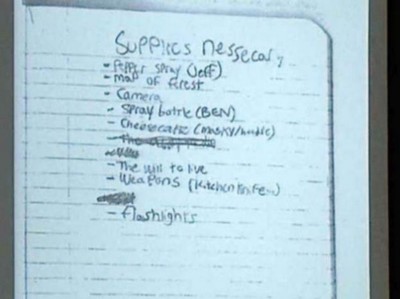 Supplies nessecary
- Pepper spray (Jeff)
- map of forest
- Camera
- Spray bottle (BEN)
- Cheesecake (masky/hoodie)
- The will to live
- Weapons (Kitchen knife...)
- flashlights